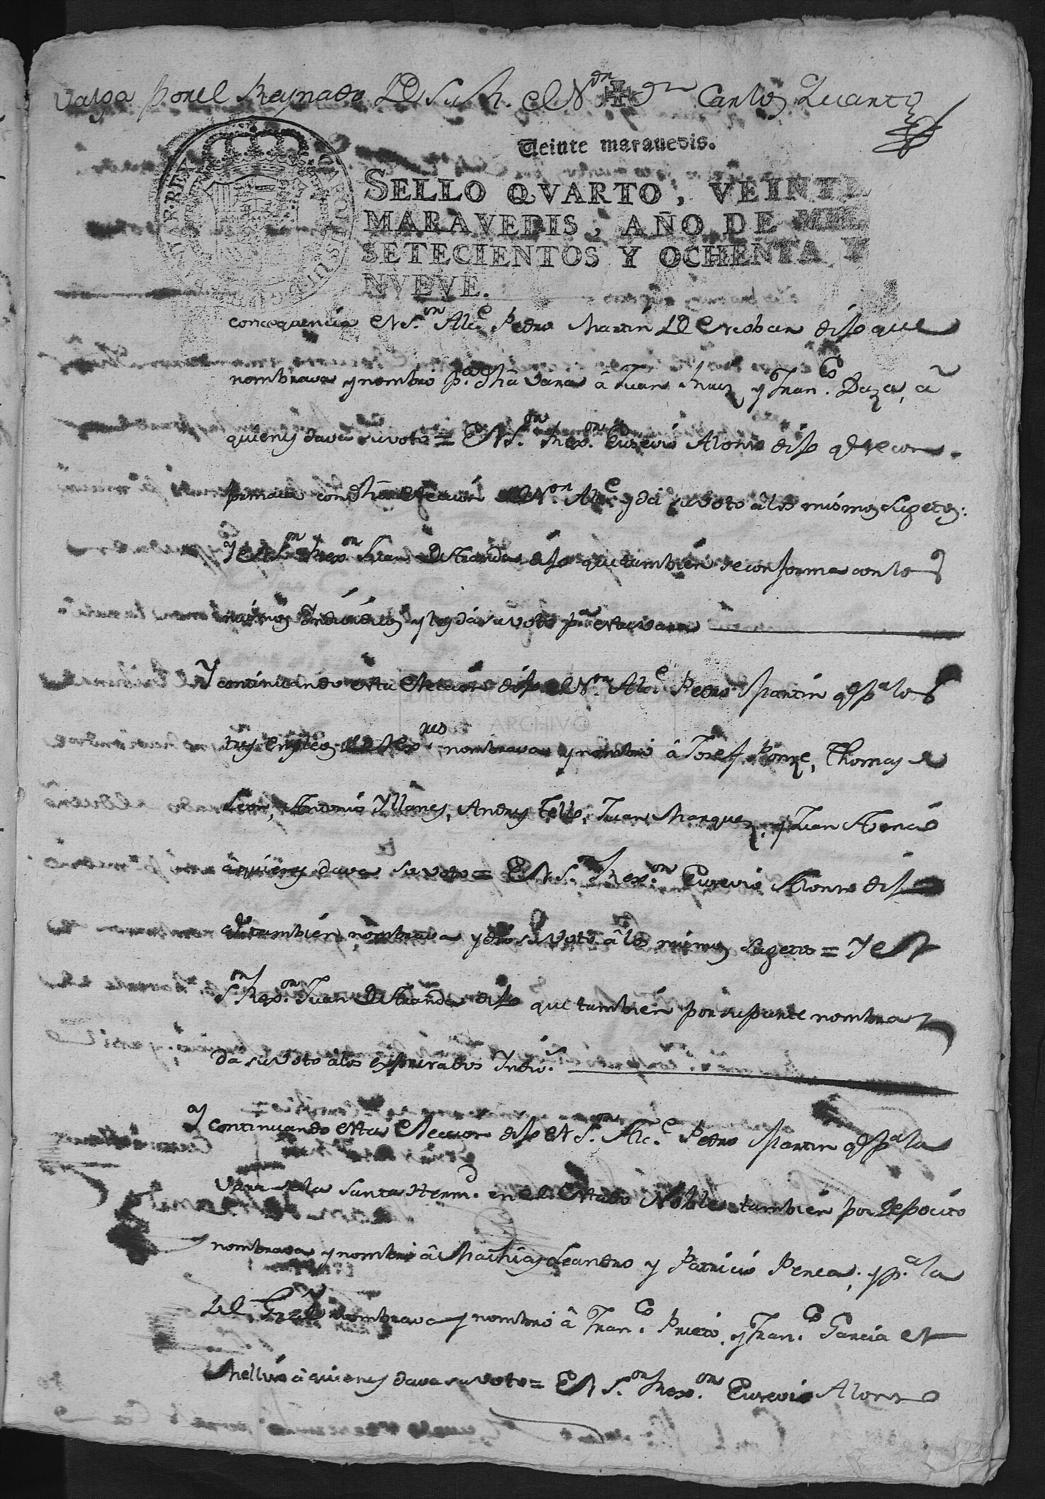 Valga por el Reynado de S. M. el Sr. Dn Carlos Quarto
Veinte maravedis.
SELLO QVARTO, VEINTE
MARAVEDIS, AÑO DE MIL
SETECIENTOS Y OCHENTA Y
NVEVE.
consequencia el Sr. Alce Pedro Martin de Escobar dijo que
nombrava y nombro pa dha vara â Juan Ruiz y Franco Daza, â
quienes dava su voto = El Sr. Rexor Eusevio Alonso dijo qe se con-
formava con dha eleccion del Sr. Alce y da su voto a los mismos Sugetos.
Y el Sr. Rexor Juan de Aranda dijo que tambien se conforma con los
mismos Individuos y les da su voto pa esta vara
Y continuando esta eleccion dijo el Sr. Alce Pedro Martin qe pa los
tres empleos de Rexres nombrava y nombró â Josef Ponze, Thomas de
Leon, Antonio Yllanes, Andres Tello, Juan Marquez, y Juan Asencio
â quienes dava su voto = El Sr. Rexor Eusevio Alonso dijo
qe tambien nombrava y dio su voto â los mismos sugetos = Y el
Sr. Rexor Juan de Aranda dijo que tambien por su parte nombra y
da su voto a los expresados Indivs
Y continuando esta eleccion dijo el Sr. Alce Pedro Martin qe pa la
vara de la Santa Hermd. en el Estado Noble tambien por deposito
nombrava y nombró â Mathias Leandro y Patricio Perea, y pa la
del Genl nombrava y nombró â Franco Prieto, y Franco Garcia el
Mellizo â quienes dava su voto = El Sr. Rexor Eusevio Alonso